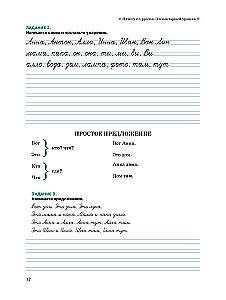 Я пишу по-русски. Элементарный уровень
ЗАДАНИЕ 2.
Напишите слова и поставьте ударение.
Анна, Антон, Алла, Инна, Иван, Вон Лин
мама, папа, он, она, ты, мы, вы, Вы
алло, вода, дом, лампа, фото, там, тут
ПРОСТОЕ ПРЕДЛОЖЕНИЕ
Вот
Это
кто? что?
Вот Анна.
Это дом.
Кто
Что
где?
Анна дома.
Дом там.
ЗАДАНИЕ 3.
Напишите предложения.
Вот дом. Это дом. Это луна.
Это мама и папа. Мама и папа дома.
Это Анна и Алла. Анна тут. Алла там.
Это Иван и Инна. Иван там, Инна тут.
12